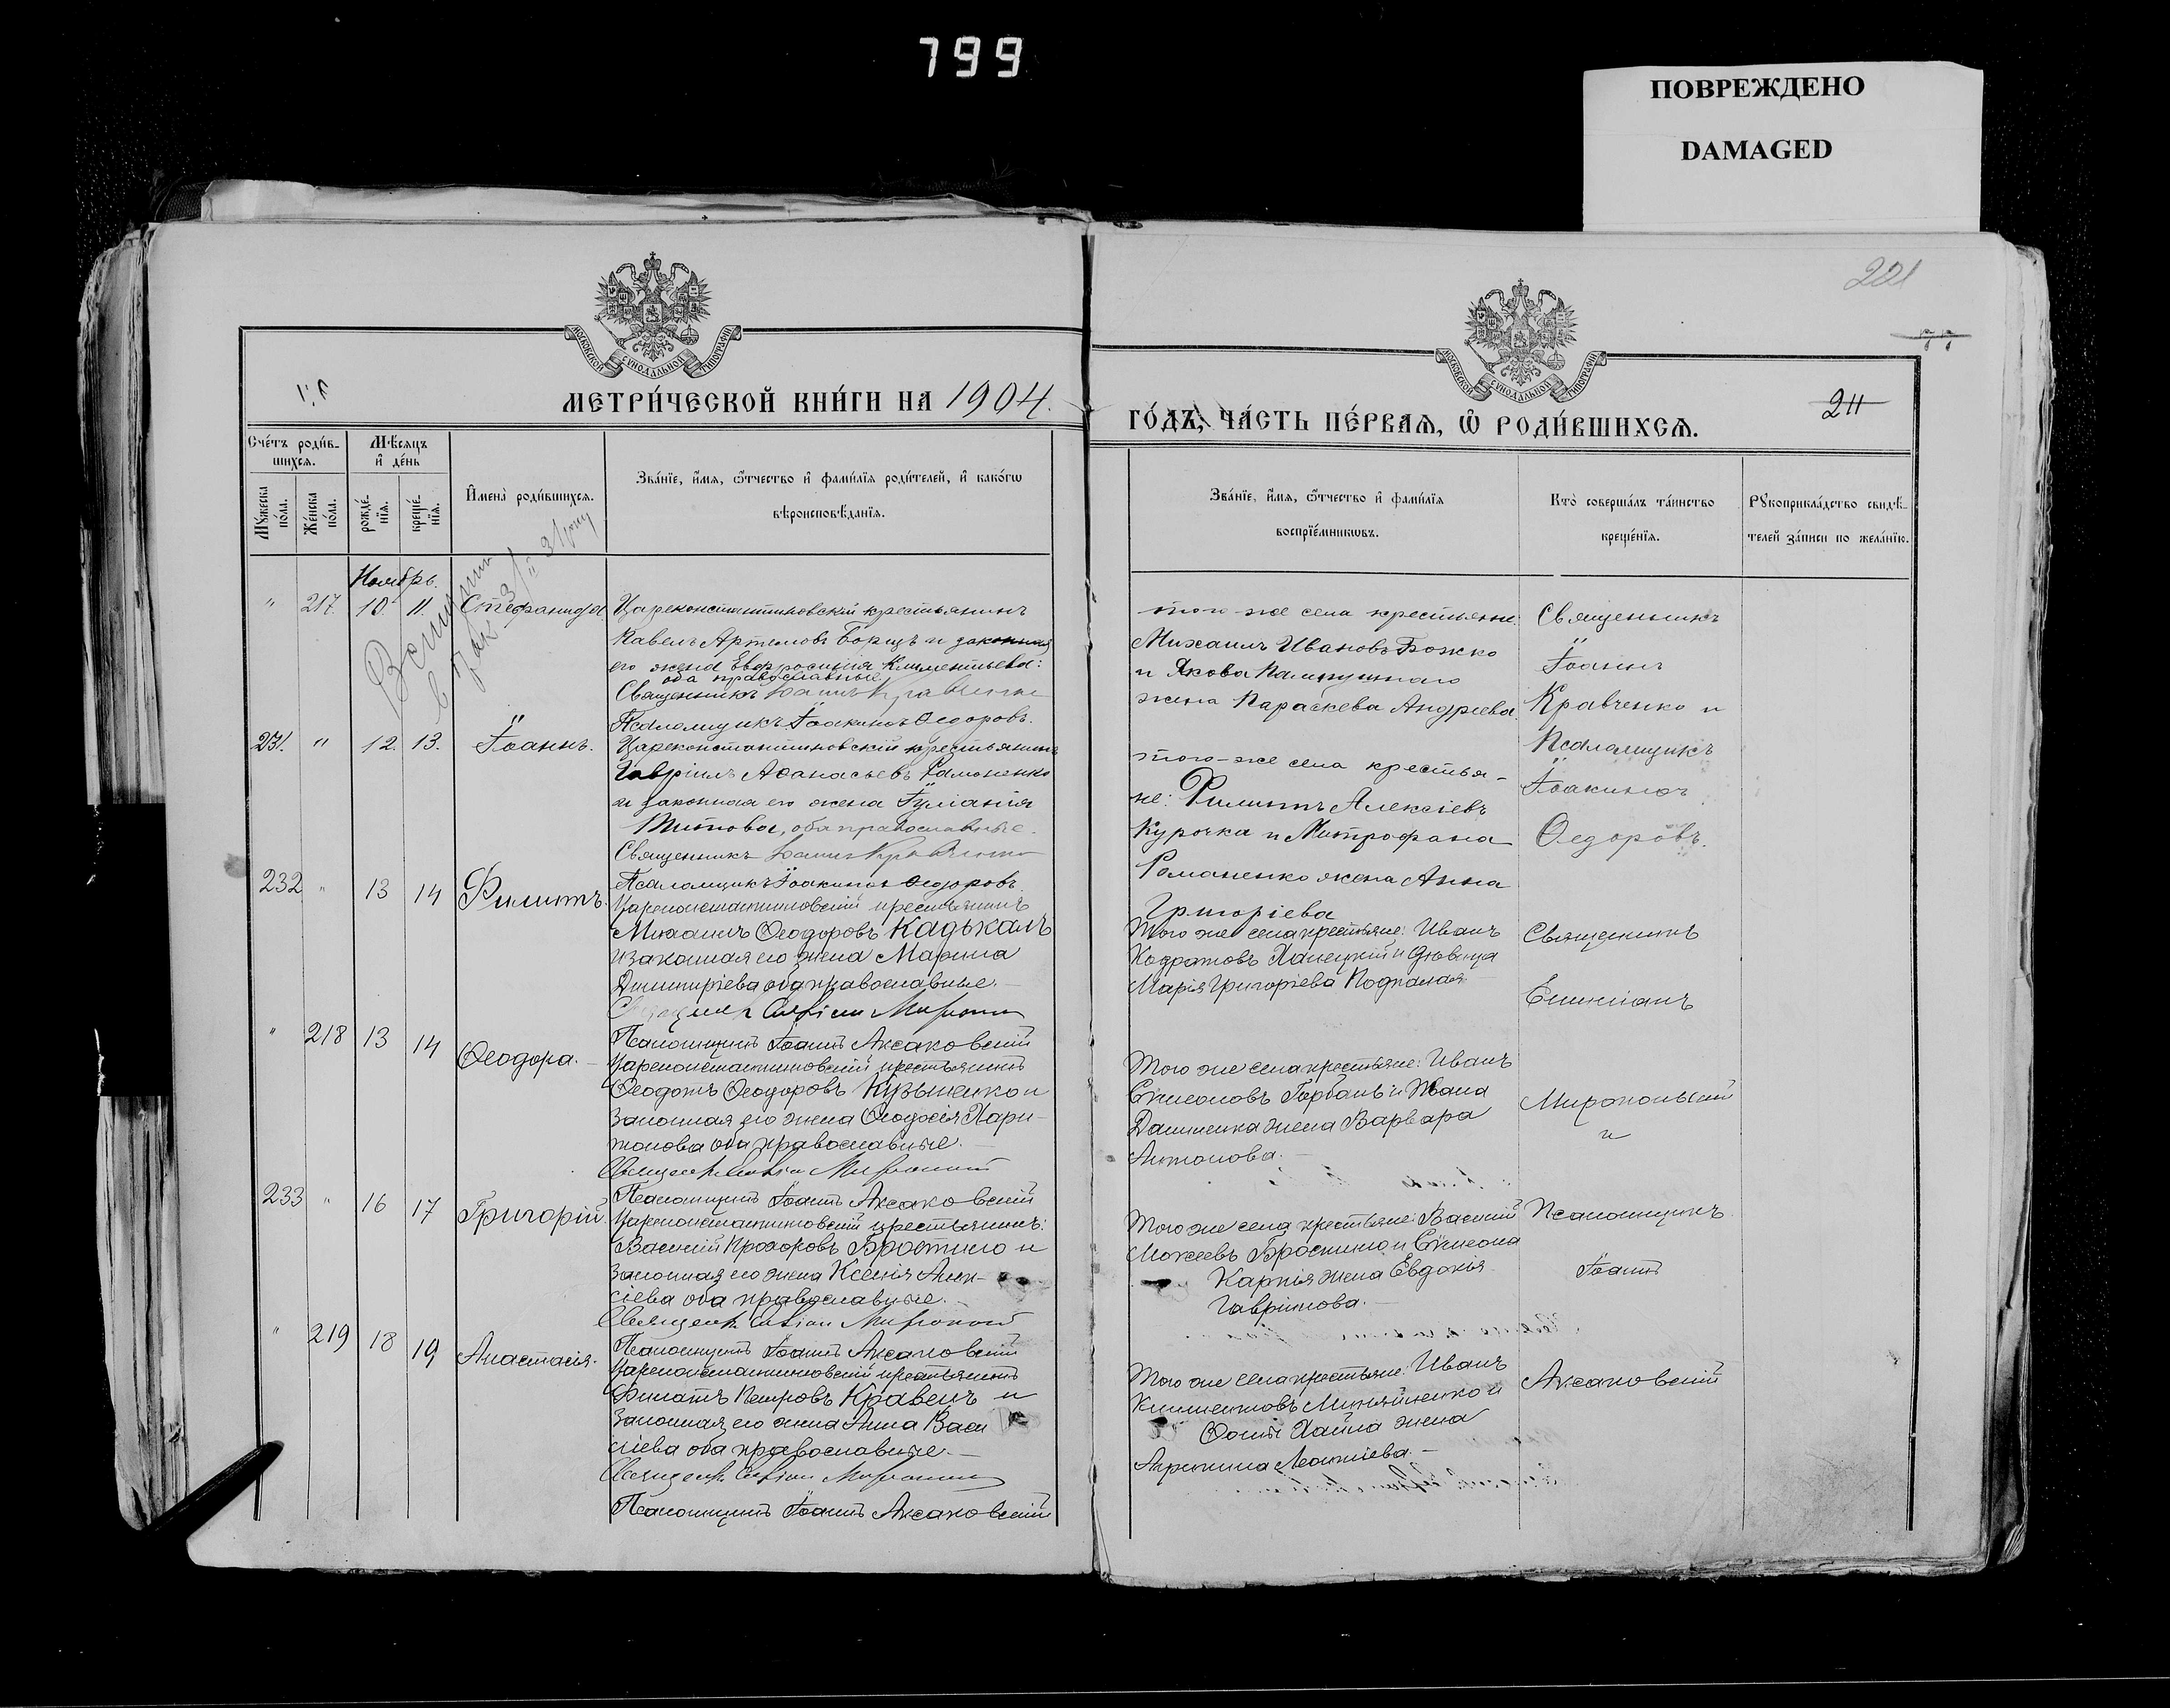 799
ПОВРЕЖДЕНО
DAMAGED
221
211
МОСКОВСКОЙ СѴНОДАЛЬНОЙ ТИПОГРАФІИ
МОСКОВСКОЙ СѴНОДАЛЬНОЙ ТИПОГРАФІИ
МЕТРИ́ЧЕСКОЙ КНИ́ГИ НА 1904.
ГО́ДЪ, ЧА́СТЬ ПЕ́РВАѦ, Ѽ РОДИ́ВШИХСѦ.
Сче́тъ роди́в-
шихсѧ.
Мѣ́сѧцъ
и҆ де́нь
Мꙋ́жеска по́ла.
Же́нска по́ла.
рожде́-
нїѧ.
креще́-
нїѧ.
И҆мена̀ роди́вшихсѧ.
Зва́нїе, и҆́мѧ, ѻ҆́тчество и҆ фамı́лїѧ роди́телей, и҆ како́гѡ
вѣроисповѣ́данїѧ.
Зва́нїе, и҆́мѧ, ѻ҆́тчество и҆ фамı́лїѧ
воспрїе́мникѡвъ.
Кто̀ соверша́лъ та́инство
креще́нїѧ.
Рꙋкоприкла́дство свидѣ́-
телей за́писи по жела́нїю.
Ноябрь.
" 217. 10. 11. Стефанида
Цареконстантиновскій крестьянинъ
Павелъ Артемовъ Борщъ и законная
его жена Евфросинія Климентьева:
оба православные
Священникъ Іоаннъ Кравченко
Псаломщикъ Іоакимъ Ѳедоровъ.
того-же села крестьяне:
Михаилъ Ивановъ Божко
и Якова
жена Параскева Андреева.
Священникъ
Іоаннъ
Кравченко и
Псаломщикъ
Іоакимъ
Ѳедоровъ.
231. " 12. 13. Іоаннъ.
Цареконстантиновскій крестьянинъ
Гавріилъ Аѳанасьевъ Рамоненко
и законная его жена Іуліанія
Титова, оба православные.
Священникъ Іоаннъ Кравченко
Псаломщикъ Іоакимъ Ѳедоровъ.
того-же села крестья-
не: Филиппъ Алексіевъ
Курочка и Митрофана
Романенко жена Анна
Григоріева
232 " 13 14 Филиппъ.
Цареконстантиновскій крестьянинъ
Михаилъ Ѳеодоровъ Кадькалъ
и законная его жена Марина
Димитріева оба православные.
Псаломщикъ Іоаннъ Аксаковскій
Того же села крестьяне: Иванъ
Кодратовъ Ханецкій и дѣвица
Марія Григоріева Подпалая
Священникъ
" 218 13 14 Ѳеодора.
Цареконстантиновскій крестьянинъ
Ѳеодотъ Ѳеодоровъ Кузьменко и
законная его жена Ѳеодосія Хари-
тонова оба православные.
Псаломщикъ Іоаннъ Аксаковскій
Того же села крестьяне: Иванъ
Сѵмеоновъ Горбань и Ивана
Данненка жена Варвара
Антонова.
и
233 " 16 17 Григорій.
Цареконстантиновскій крестьянинъ:
Василій Прохоровъ Бростило и
законная его жена Ксенія Алек-
сіева оба православные.
Псаломщикъ Іоаннъ Аксаковскій
Того же села крестьяне: Василій
Моисеевъ Бростило и Сѵмеона
Карпія жена Евдокія
Гавріилова.
Псаломщикъ
Іоаннъ
" 219 18 19 Анастасія.
Цареконстантиновскій крестьянинъ
Филатъ Петровъ Кравецъ и
законная его жена Анна Васи
ліева оба православные.
Псаломщикъ Іоаннъ Аксаковскій
Того же села крестьяне: Иванъ
жена
Агрипина Леонтіева.
Аксаковскій